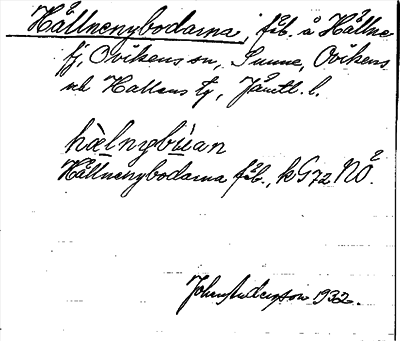 Hållnenybodarna, fåb. å Hållne
fj, Ovikens sn, Sunne, Ovikens
och Hallens tg, Jämtl. l.
hàlnybúan
Hållnenybodarna fåb., k G72 NÖ.
John Anderson 1932.